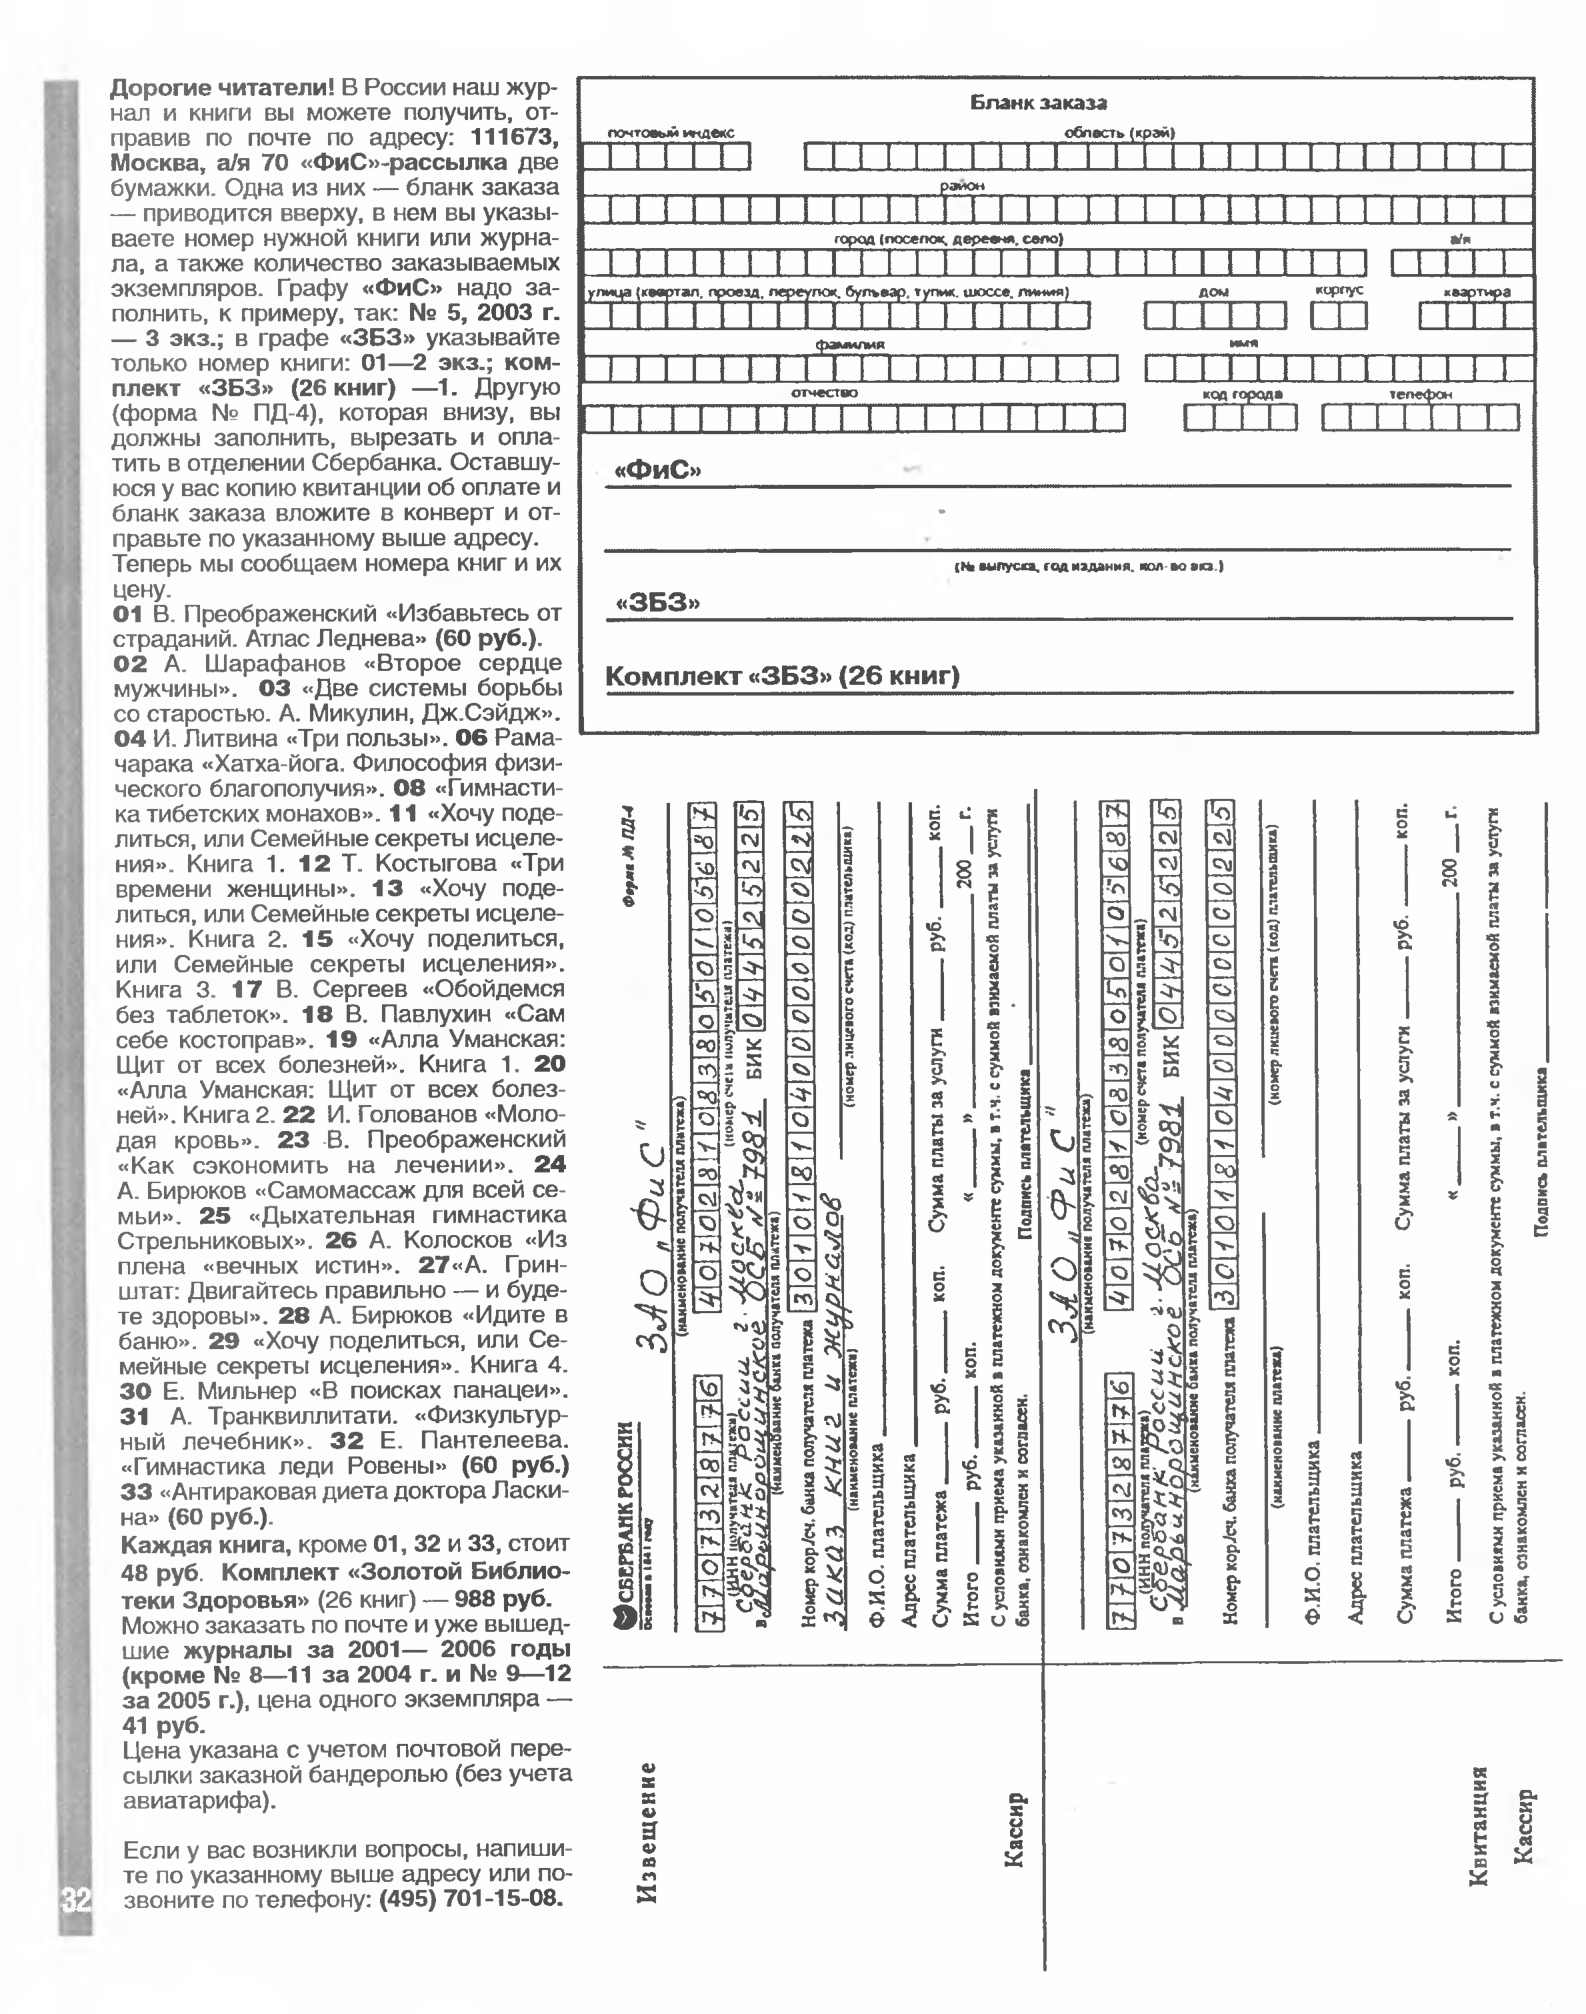 Дорогие читатели! В России наш жур-
нал и книги вы можете получить, от-
правив по почте по адресу: 111673,
Москва, а/я 70 «ФиС»-рассылка две
бумажки. Одна из них — бланк заказа
— приводится вверху, в нем вы указы-
ваете номер нужной книги или журна-
ла, а также количество заказываемых
экземпляров. Графу «ФиС» надо за-
полнить, к примеру, так: № 5, 2003 г.
— 3 экз.; в графе «ЗБЗ» указывайте
только номер книги: 01—2 экз.; ком-
плект «ЗБЗ» (26 книг) —1. Другую
(форма № ПД-4), которая внизу, вы
должны заполнить, вырезать и опла-
тить в отделении Сбербанка. Оставшу-
юся у вас копию квитанции об оплате и
бланк заказа вложите в конверт и от-
правьте по указанному выше адресу.
Теперь мы сообщаем номера книг и их
цену.
01 В. Преображенский «Избавьтесь от
страданий. Атлас Леднева» (60 руб.).
02 А. Шарафанов «Второе сердце
мужчины». 03 «Две системы борьбы
со старостью. А. Микулин, Дж.Сэйдж».
04 И. Литвина «Три пользы». 06 Рама-
чарака «Хатха-йога. Философия физи-
ческого благополучия». 08 «Гимнасти-
ка тибетских монахов». 11 «Хочу поде-
литься, или Семейные секреты исцеле-
ния». Книга 1. 12 Т. Костыгова «Три
времени женщины». 13 «Хочу поде-
литься, или Семейные секреты исцеле-
ния». Книга 2. 15 «Хочу поделиться,
или Семейные секреты исцеления».
Книга 3. 17 В. Сергеев «Обойдемся
без таблеток». 18 В. Павлухин «Сам
себе костоправ». 19 «Алла Уманская:
Щит от всех болезней». Книга 1. 20
«Алла Уманская: Щит от всех болез-
ней». Книга 2. 22 И. Голованов «Моло-
дая кровь». 23 В. Преображенский
«Как сэкономить на лечении». 24
А. Бирюков «Самомассаж для всей се-
мьи». 25 «Дыхательная гимнастика
Стрельниковых». 26 А. Колосков «Из
плена «вечных истин». 27«А. Грин-
штат: Двигайтесь правильно — и буде-
те здоровы». 28 А. Бирюков «Идите в
баню». 29 «Хочу поделиться, или Се-
мейные секреты исцеления». Книга 4.
30 Е. Мильнер «В поисках панацеи».
31 А. Транквиллитати. «Физкультур-
ный лечебник». 32 Е. Пантелеева.
«Гимнастика леди Ровены» (60 руб.)
33 «Антираковая диета доктора Ласки-
на» (60 руб.).
Каждая книга, кроме 01, 32 и 33, стоит
48 руб. Комплект «Золотой Библио-
теки Здоровья» (26 книг) — 988 руб.
Можно заказать по почте и уже вышед-
шие журналы за 2001— 2006 годы
(кроме № 8—11 за 2004 г. и № 9—12
за 2005 г.), цена одного экземпляра —
41 руб.
Цена указана с учетом почтовой пере-
сылки заказной бандеролью (без учета
авиатарифа).
Если у вас возникли вопросы, напиши-
те по указанному выше адресу или по-
звоните по телефону: (495) 701-15-08.
32
Бланк заказа
почтовый индекс область (край)
район
город (поселок, деревня, село) а/я
улица (квартал, проезд, переулок, бульвар, тупик, шоссе, линия) дом корпус квартира
фамилия имя
отчество код города телефон
«ФиС»
(№ выпуска, год издания, кол-во экз.)
«ЗБЗ»
Комплект «ЗБЗ» (26 книг)
Извещение
Кассир
СБЕРБАНК РОССИИ Форма № ПД-4
Основан в 1841 году
ЗАО „ФиС"
(наименование получателя платежа)
7707328776 40702810838050105687
(ИНН получателя платежа) (номер счета получателя платежа)
Сбербанк России г. Москва
в Марьинорощинское ОСБ №7981 БИК 044525225
(наименование банка получателя платежа)
Номер кор/сч. банка получателя платежа 30101810400000000225
Заказ книг и журналов
(наименование платежа) (номер лицевого счета (код) плательщика)
Ф.И.О. плательщика
Адрес плательщика
Сумма платежа руб. коп. Сумма платы за услуги руб. коп.
Итого руб. коп. « » 200 г.
С условиями приема указанной в платежном документе суммы, в т.ч. с суммой взимаемой платы за услуги
банка, ознакомлен и согласен. Подпись плательщика
Квитанция
Кассир
ЗАО „ФиС"
(наименование получателя платежа)
7707328776 40702810838050105687
(ИНН получателя платежа) (номер счета получателя платежа)
Сбербанк России г. Москва
в Марьинорощинское ОСБ №7981 БИК 044525225
(наименование банка получателя платежа)
Номер кор/сч. банка получателя платежа 30101810400000000225
(наименование платежа) (номер лицевого счета (код) плательщика)
Ф.И.О. плательщика
Адрес плательщика
Сумма платежа руб. коп. Сумма платы за услуги руб. коп.
Итого руб. коп. « » 200 г.
С условиями приема указанной в платежном документе суммы, в т.ч. с суммой взимаемой платы за услуги
банка, ознакомлен и согласен.
Подпись плательщика